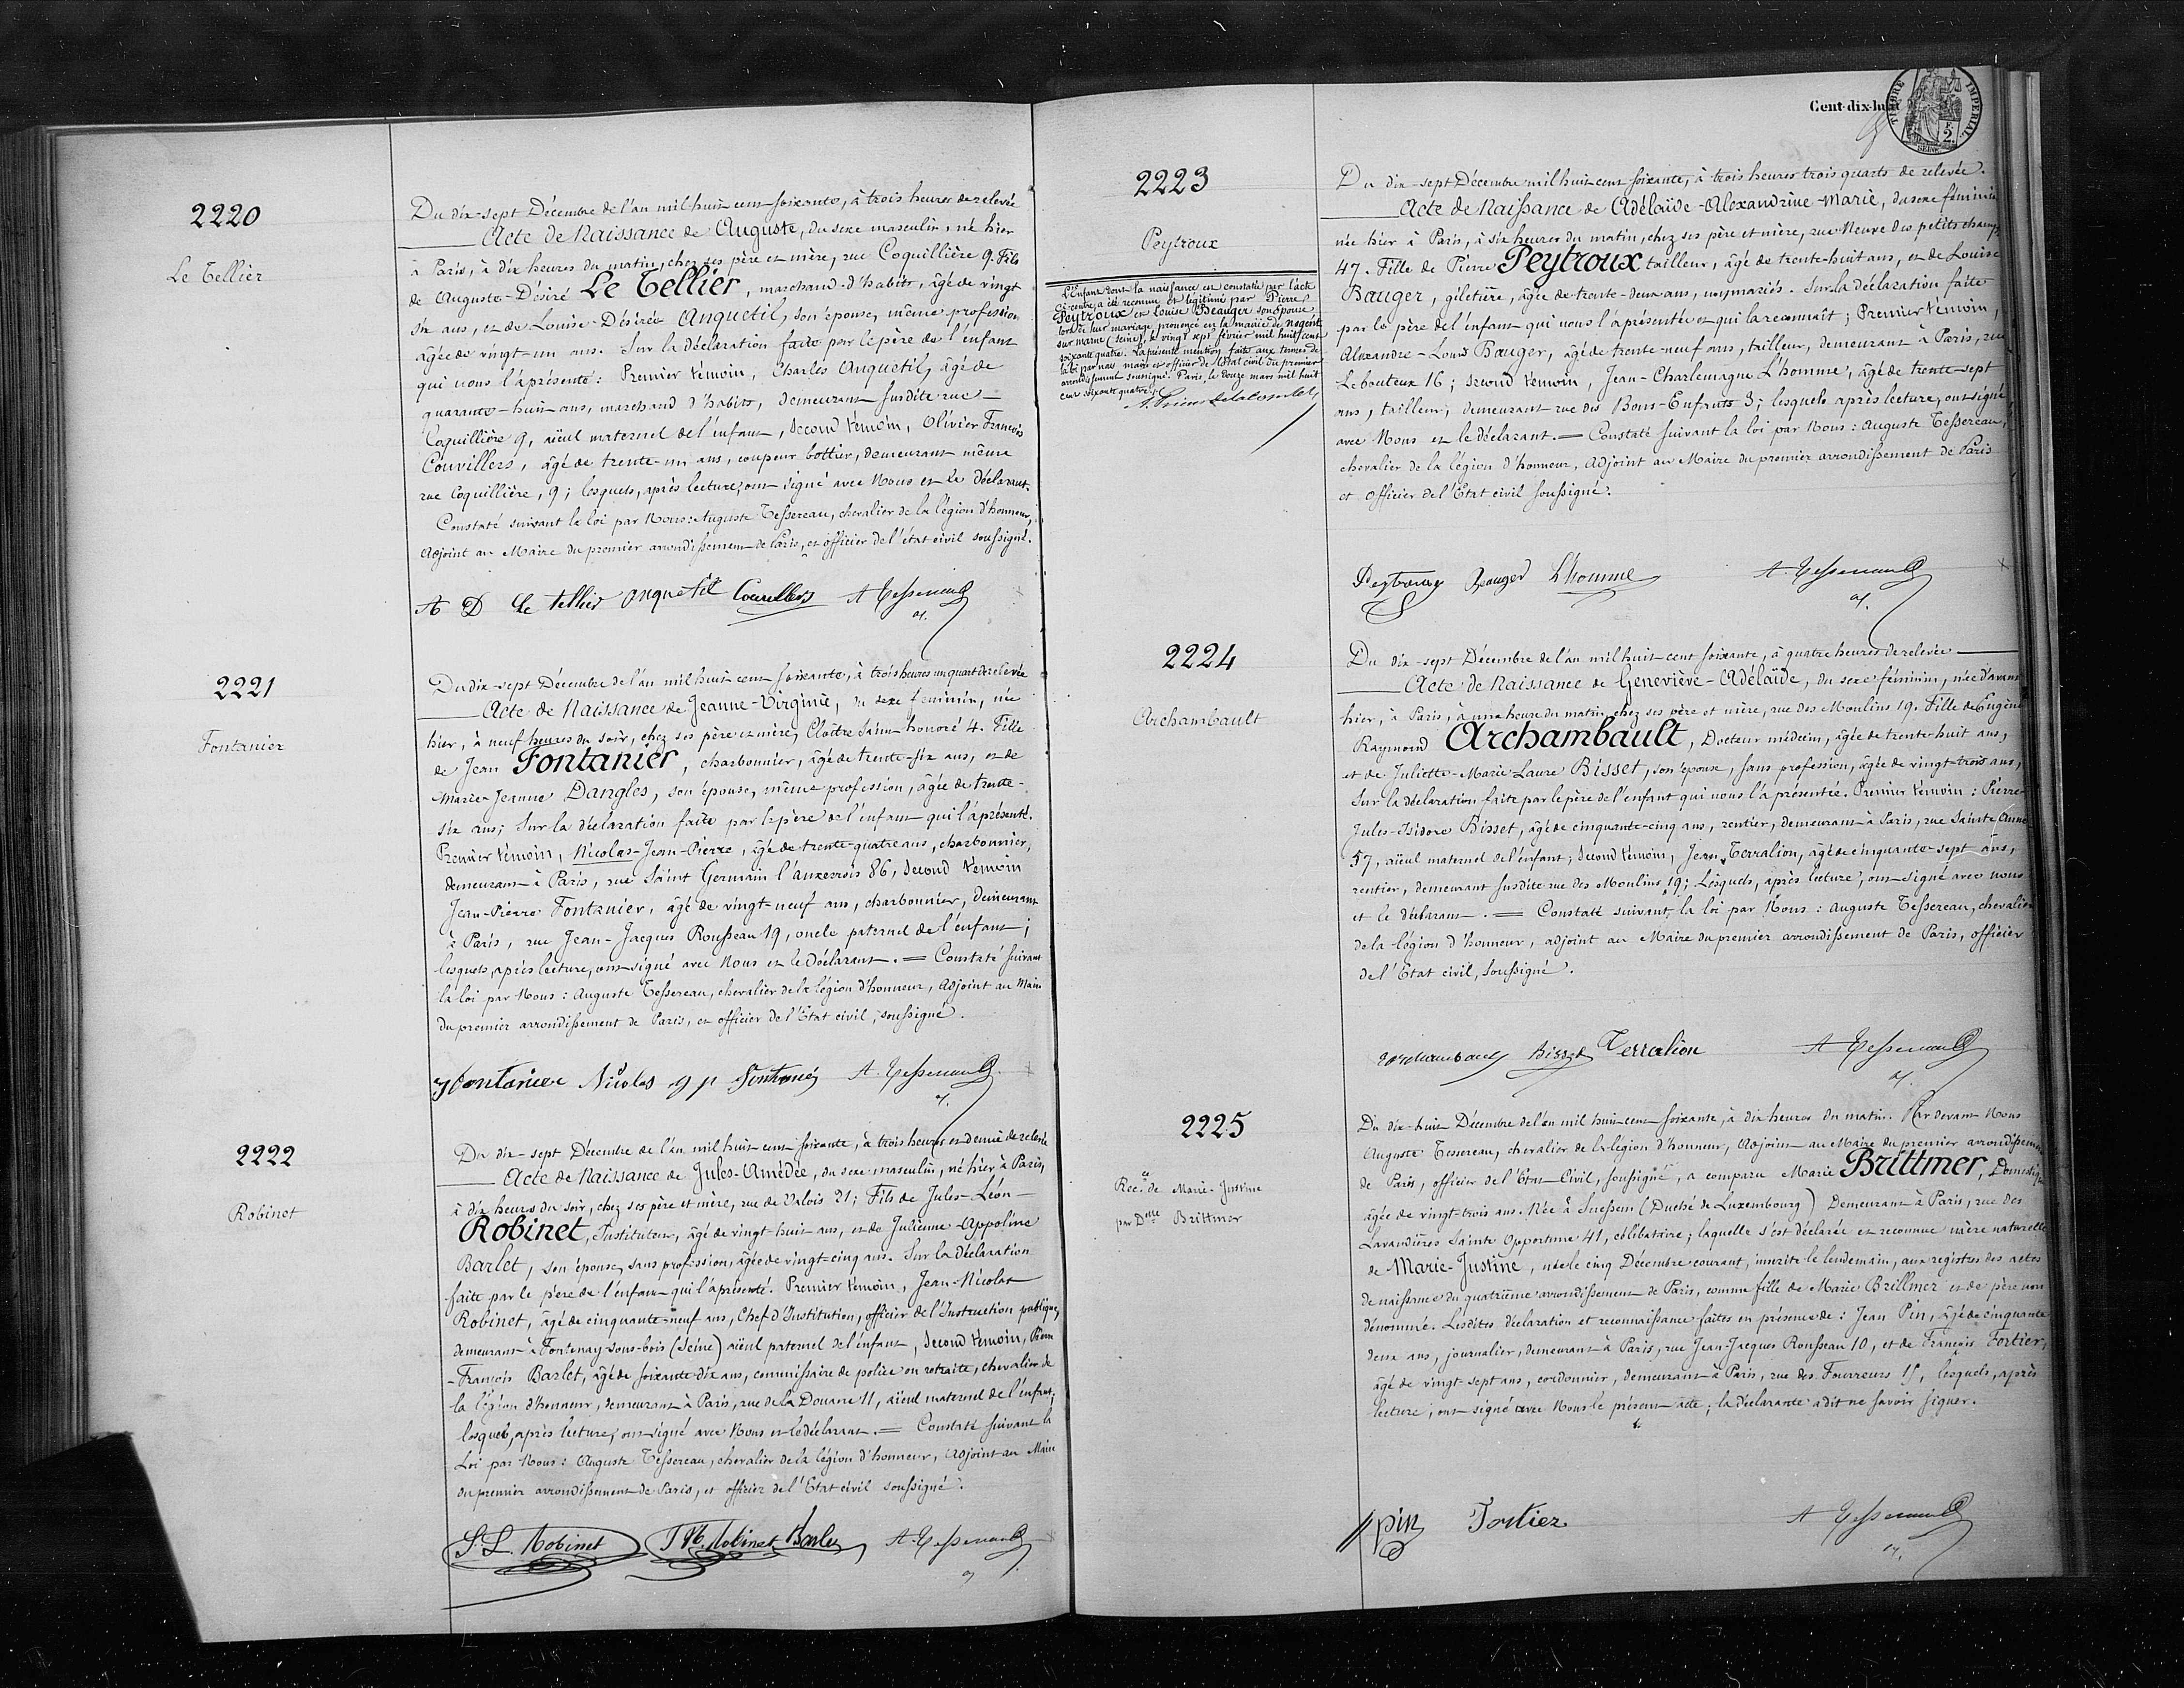 2220
Le Tellier
Du dix-sept Décembre de l'an mil huit cent soixante, à trois heures de relevée
Acte de Naissance de Auguste, du sexe masculin, né hier
à Paris, à dix heures du matin, chez ses père et mère, rue Coquillière 9. Fils
de Auguste-Désiré Le Tellier, marchand d'habits, âgé de vingt
six ans, et de Louise-Désirée Anquetil, son épouse, même profession
âgée de vingt-un ans. Sur la déclaration faite par le père de l'enfant
qui nous l'a présenté : Premier témoin, Charles Anquetil, âgé de
quarante-huit ans, marchand d'habits, demeurant susdite rue
Coquillière 9, aïeul maternel de l'enfant, Second témoin, Olivier François
Couvillers, âgé de trente-un ans, coupeur bottier, demeurant même
rue Coquillière, 9 ; lesquels, après lecture, ont signé avec Nous et le déclarant.
Constaté suivant la loi par Nous : Auguste Tessereau, chevalier de la légion d'honneur,
adjoint au Maire du premier arrondissement de Paris, et officier de l'état civil soussigné.
A D Le Tellier Anquetil Couvillers A Tessereau
2221
Fontanier
Du dix-sept Décembre de l'an mil huit cent soixante, à trois heures un quart de relevée
Acte de Naissance de Jeanne-Virginie, du sexe féminin, née
hier, à neuf heures du soir, chez ses père et mère, Cloître Saint honoré 4. Fille
de Jean Fontanier, charbonnier, âgé de trente-six ans, et de
Marie-Jeanne Dangles, son épouse, même profession, âgée de trente-
six ans ; Sur la déclaration faite par le père de l'enfant qui l'a présenté.
Premier témoin, Nicolas-Jean-Pierre, âgé de trente-quatre ans, charbonnier,
demeurant à Paris, rue Saint Germain l'auxerrois 86, Second témoin
Jean-Pierre Fontanier, âgé de vingt-neuf ans, charbonnier, demeurant
à Paris, rue Jean-Jacques Rousseau 19, oncle paternel de l'enfant ;
lesquels, après lecture, ont signé avec Nous et le déclarant. = Constaté suivant
la loi par Nous : Auguste Tessereau, chevalier de la légion d'honneur, adjoint au Maire
du premier arrondissement de Paris, et officier de l'Etat civil, soussigné.
Fontanier Nicolas Fontanié A. Tessereau
2222
Robinet
Du dix-sept Décembre de l'an mil huit cent soixante, à trois heures et demie de relevée
Acte de Naissance de Jules-Amédée, du sexe masculin, né hier à Paris,
à dix heures du soir, chez ses père et mère, rue de Valois 21 ; Fils de Jules-Léon
Robinet, Instituteur, âgé de vingt-huit ans, et de Julienne-Appoline
Barlet, son épouse, sans profession, âgée de vingt-cinq ans. Sur la déclaration
faite par le père de l'enfant qui l'a présenté. Premier témoin, Jean-Nicolas
Robinet, âgé de cinquante-neuf ans, Chef d'Institution, officier de l'Instruction publique,
demeurant à Fontenay-sous-bois (Seine) aïeul paternel de l'enfant, Second témoin, Pierre
-François Barlet, âgé de soixante-dix ans, commissaire de police en retraite, chevalier de
la légion d'honneur, demeurant à Paris, rue de la Douane 11, aïeul maternel de l'enfant,
lesquels, après lecture, ont signé avec Nous et le déclarant. = Constaté suivant la
Loi par Nous : Auguste Tessereau, chevalier de la légion d'honneur, adjoint au Maire
du premier arrondissement de Paris, et officier de l'Etat civil soussigné.
J. L. Robinet Robinet Barlet A. Tessereau
Cent-dix-huit
TIMBRE IMPERIAL
2.
SEINE
2223
Peytroux
L'Enfant dont la naissance est constatée par l'acte
ci-contre, a été reconnu et légitimé par Pierre
Peytroux et Louise Beauger son épouse
lors de leur mariage prononcé en la mairie de Nogent
sur marne (seine), le vingt sept février mil huit cent
soixante quatre. La présente mention faite aux termes de
la loi par nous maire et officier de l'état civil du premier
arrondissement soussigné. Paris, le douze mars mil huit
cent soixante quatre.
Du dix-sept Décembre mil huit cent soixante, à trois heures trois quarts de relevée.
Acte de Naissance de Adélaïde-Alexandrine-Marie, du sexe féminin
née hier à Paris, à six heures du matin, chez ses père et mère, rue Neuve des petits champs
47. Fille de Pierre Peytroux tailleur, âgé de trente-huit ans, et de Louise
Bauger, giletière, âgée de trente-deux ans, non mariés. Sur la déclaration faite
par le père de l'enfant qui nous l'a présentée et qui la reconnaît ; Premier témoin,
Alexandre-Louis Bauger, âgé de trente-neuf ans, tailleur, demeurant à Paris, rue
Lebouteux 16 ; Second témoin, Jean-Charlemagne L'homme, âgé de trente-sept
ans, tailleur, demeurant rue des Bons-Enfants 3 ; lesquels après lecture, ont signé
avec Nous et le déclarant. = Constaté suivant la loi par Nous : Auguste Tessereau,
chevalier de la légion d'honneur, adjoint au Maire du premier arrondissement de Paris
et officier de l'Etat civil soussigné.
Peytroux Bauger L'homme A. Tessereau
2224
Archambault
Du dix-sept Décembre de l'an mil huit cent soixante, à quatre heures de relevée
Acte de Naissance de Geneviève-Adélaïde, du sexe féminin, née d'avant
hier, à Paris, à une heure du matin, chez ses père et mère, rue des Moulins 19. Fille de Eugène
Raymond Archambault, Docteur médecin, âgé de trente-huit ans,
et de Juliette-Marie-Laure Bisset, son épouse, sans profession, âgée de vingt-trois ans,
Sur la déclaration faite par le père de l'enfant qui nous l'a présentée. Premier témoin : Pierre-
Jules-Isidore Bisset, âgé de cinquante-cinq ans, rentier, demeurant à Paris, rue Sainte Anne
57, aïeul maternel de l'enfant ; Second témoin, Jean Terralion, âgé de cinquante-sept ans,
rentier, demeurant susdite rue des Moulins 19 ; Lesquels, après lecture, ont signé avec nous
et le déclarant. = Constaté suivant la loi par Nous : Auguste Tessereau, chevalier
de la légion d'honneur, adjoint au Maire du premier arrondissement de Paris, officier
de l'Etat civil, soussigné.
Archambault Bisset Terralion A Tessereau
2225
Rec.ce de Marie-Justine
par Delle Brittmer
Du dix-huit Décembre de l'an mil huit cent soixante, à dix heures du matin. Par devant Nous
Auguste Tessereau, chevalier de la légion d'honneur, adjoint au Maire du premier arrondissement
de Paris, officier de l'Etat-Civil, soussigné, a comparu Marie Brittmer, Domestique
âgée de vingt-trois ans. Née à (Duché de Luxembourg) Demeurant à Paris, rue des
Lavandières Sainte Opportune 41, célibataire ; laquelle s'est déclarée et reconnue mère naturelle
de Marie-Justine, née le cinq Décembre courant, inscrite le lendemain, aux registres des actes
de naissance du quatrième arrondissement de Paris, comme fille de Marie Brillmer et de père non
dénommé. Lesdites déclaration et reconnaissance faites en présence de : Jean Pin, âgé de cinquante
deux ans, journalier, demeurant à Paris, rue Jean-Jacques Rousseau 10, et de François Fortier,
âgé de vingt-sept ans, cordonnier, demeurant à Paris, rue des Fourreurs 15, lesquels, après
lecture, ont signé avec Nous le présent acte ; la déclarante a dit ne savoir signer.
Pin Fortier A Tessereau